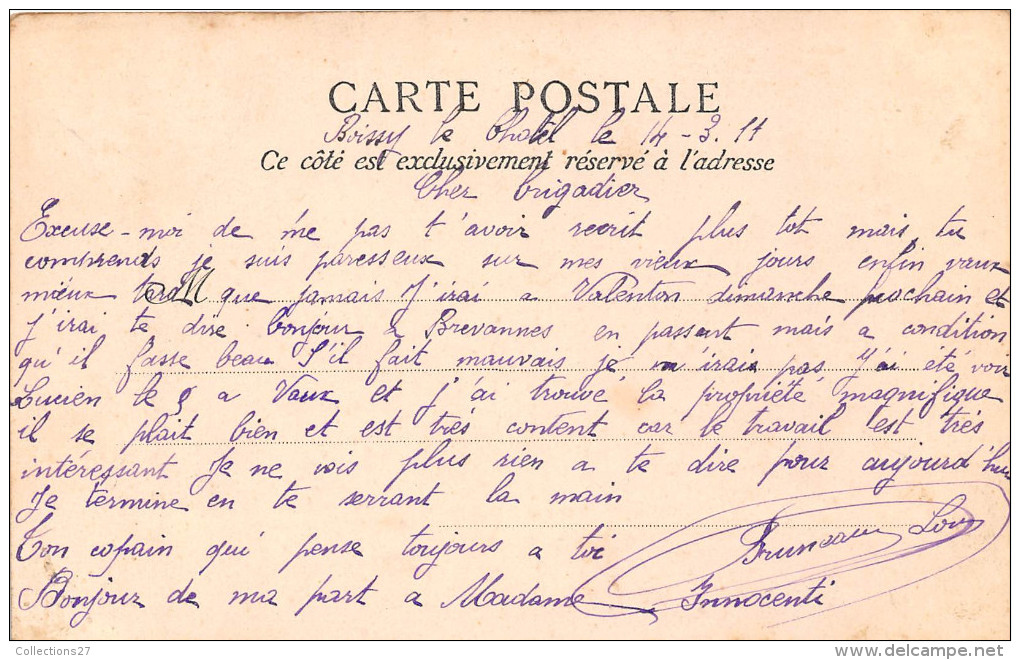 CARTE POSTALE
Boissy le Chatel le 14 - 3. 11
Ce côté est exclusivement réservé à l'adresse
Cher brigadier
Excuse-moi de me pas t'avoir recrit plus tot mais tu
comprends je suis paresseux sur mes vieux jours enfin vaux
mieux tard que jamais J'irai a Valenton dimanche prochain et
j'irai te dire bonjour a Brevannes en passant mais a condition
qu'il fasse beau S'il fait mauvais je n'irais pas J'ai été voir
Lucien le 5 a Vaux et j'ai trouvé la propriété magnifique
il se plait bien et est trés content car le travail est trés
intéressant Je ne vois plus rien a te dire pour aujourd'hui
Je termine en te serrant la main
Ton copain qui pense toujours a toi Bruneau
Bonjour de ma part a Madame Innocenti
Collections27
delcampe.net